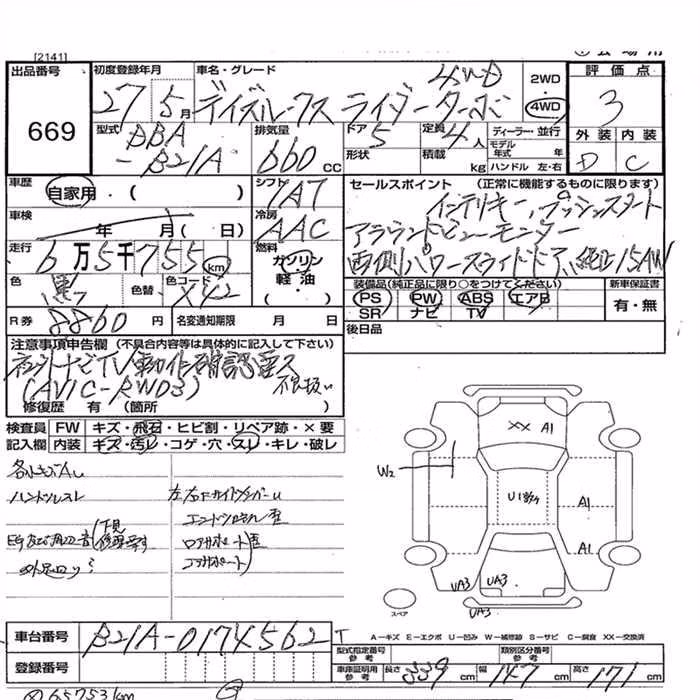 [2141]
出品番号 初度登録年月 車名・グレード 2WD 評価点
669 27 5月 デイズルークス ライダー ターボ 4WD 4WD 3
型式 DBA-B21A 排気量 660cc ドア 5 定員 4人 ディーラー・並行 外装 内装
形状 積載 kg モデル年式 年 ハンドル 左・右 D C
車歴 自家用・( ) シフト IAT セールスポイント (正常に機能するものに限ります)
インテリキー、プッシュスタート
車検 年 月( 日) 冷房 AAC アラウンドビューモニター
走行 6万5千755km 燃料 ガソリン・軽油・ 両側パワースライドドア、純正15AW
色 黒 色替 色コード X42 装備品(純正品に限り○をつけてください) 新車保証書
PS PW ABS エアB 有・無
SR ナビ TV
R券 8860円 名変通知期限 月 日 後日品
注意事項申告欄 (不具合内容等は具体的に記入して下さい)
社外ナビTV動作確認
(AVIC-RW03) 不扱い
修復歴 有 (箇所 )
検査員 FW キズ・飛石・ヒビ割・リペア跡・×要
記入欄 内装 キズ・汚レ・コゲ・穴・スレ・キレ・破レ
XX A1
W2
各小キズAU
ハンドルスレ
U1
A1
A1
下見
UA3 UA3
UA3
スペア
A-キズ E-エクボ U-凹み W-補修跡 S-サビ C-腐食 XX-交換済
車台番号 B21A-0174562 T 型式指定番号 参考 類別区分番号 参考
登録番号 車庫証明用 参考 長さ 339cm 幅 147cm 高さ 171cm
65753km